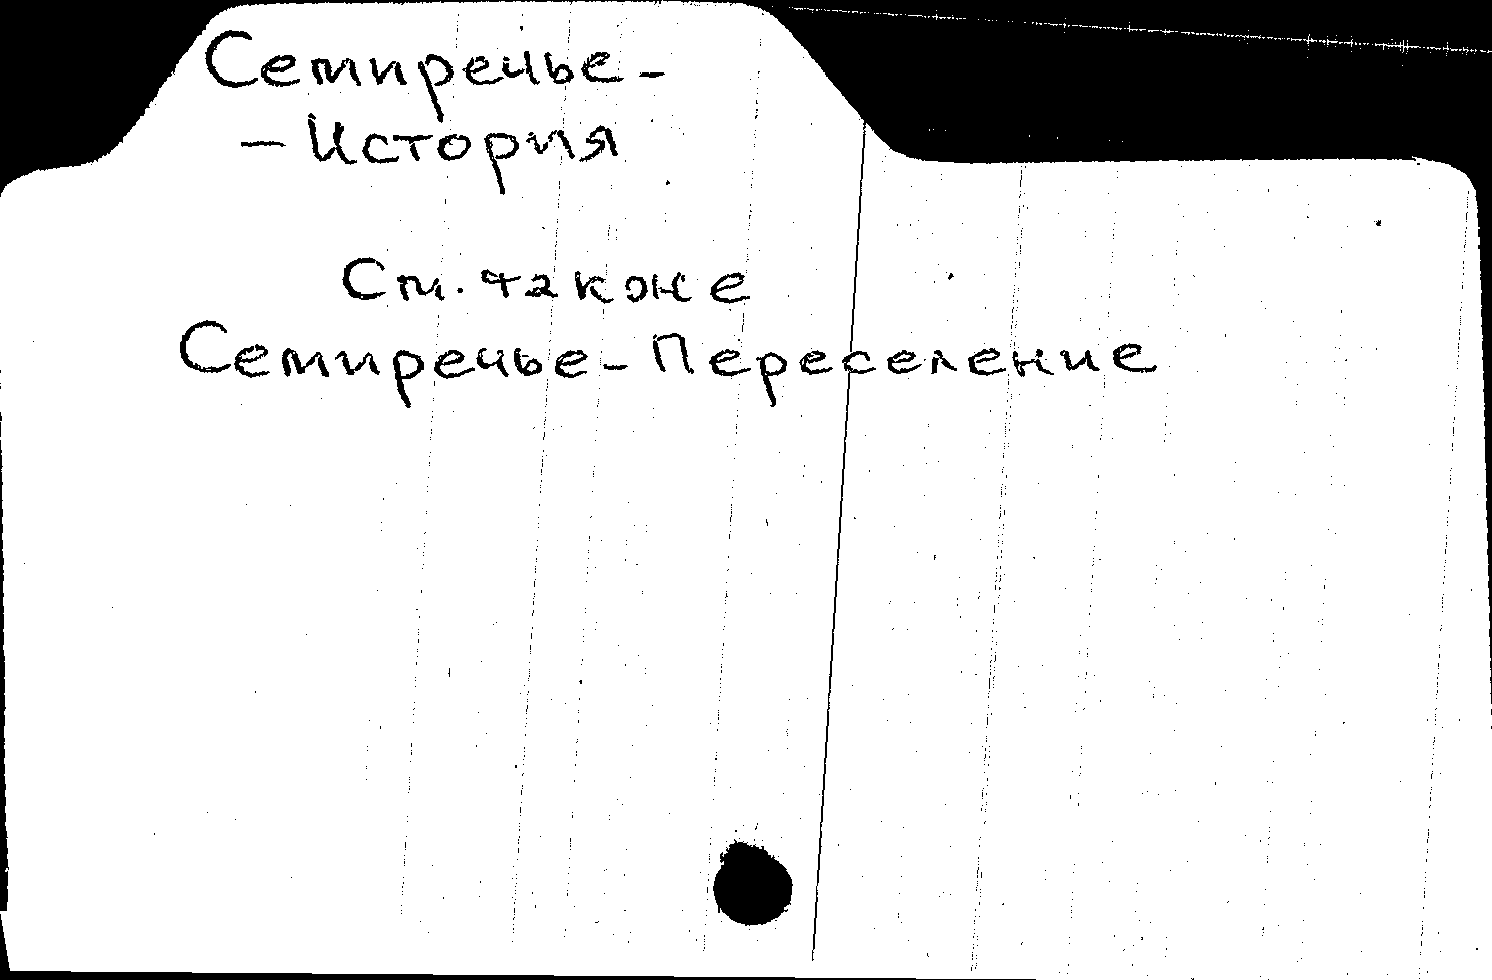 Семиречье -
- История
См. также
Семиречье - Переселение